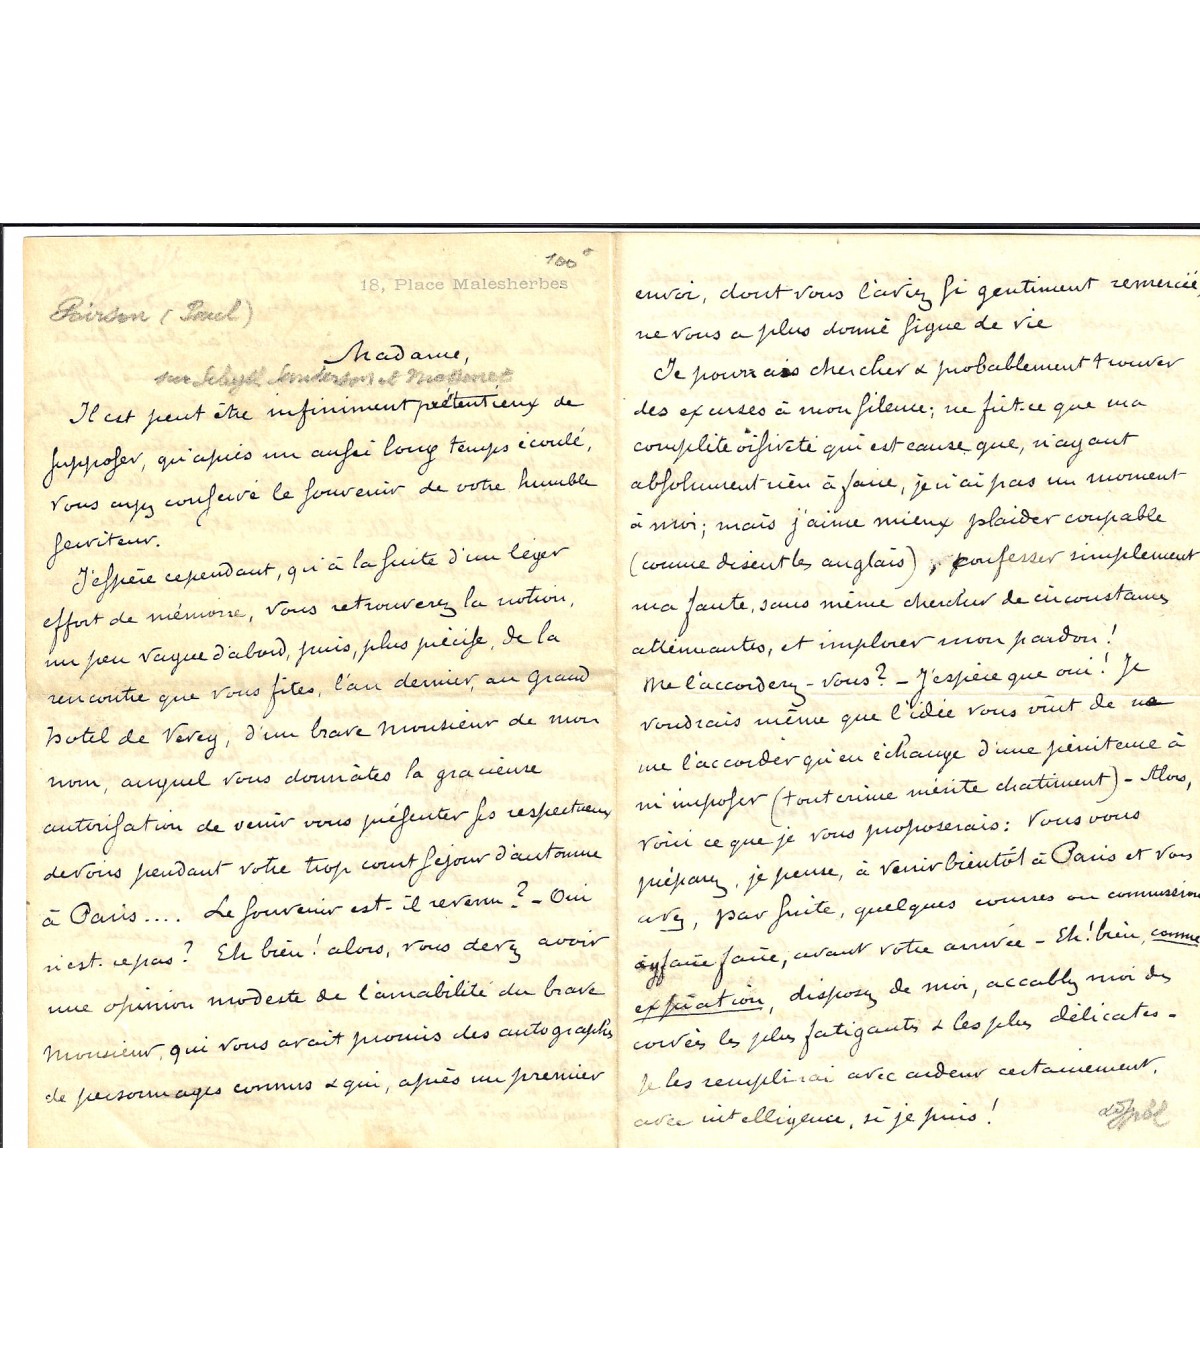 100
18, Place Malesherbes
Poirson (Paul)
Madame,
sur Sibyl Sanderson et Massenet
Il est peut être infiniment prétentieux de
supposer, qu'après un aussi long temps écoulé,
vous ayez conservé le souvenir de votre humble
serviteur.
J'espère cependant, qu'à la suite d'un léger
effort de mémoire, vous retrouverez la notion,
un peu vague d'abord, puis, plus précise, de la
rencontre que vous fîtes, l'an dernier, au Grand
hotel de Vevey, d'un brave Monsieur de mon
nom, auquel vous donnâtes la gracieuse
autorisation de venir vous présenter ses respectueux
devoirs pendant votre trop court séjour d'automne
à Paris.... Le souvenir est-il revenu? – Oui
n'est-ce pas? Eh bien! alors, vous devez avoir
une opinion modeste de l'amabilité du brave
Monsieur, qui vous avait promis des autographes
de personnages connus & qui, après un premier
envoi, dont vous l'aviez si gentiment remercié,
ne vous a plus donné signe de vie
Je pourrais chercher & probablement trouver
des excuses à mon silence; ne fût-ce que ma
complète oisiveté qui est cause que, n'ayant
absolument rien à faire, je n'ai pas un moment
à moi; mais j'aime mieux plaider coupable
(comme disent les anglais), confesser simplement
ma faute, sans même chercher de circonstances
atténuantes, et implorer mon pardon!
Me l'accorderez-vous? – J'espère que oui! Je
voudrais même que l'idée vous vînt de ne
me l'accorder qu'en échange d'une pénitence à
m'imposer (tout crime mérite chatiment) – Alors,
voici ce que je vous proposerais: Vous vous
préparez, je pense, à venir bientôt à Paris et vous
avez, par suite, quelques courses ou commissions
à faire faire, avant votre arrivée – Eh! bien, comme
expiation, disposez de moi, accablez moi des
corvées les plus fatigantes & les plus délicates –
Je les remplirai avec ardeur certainement,
avec intelligence, si je puis!